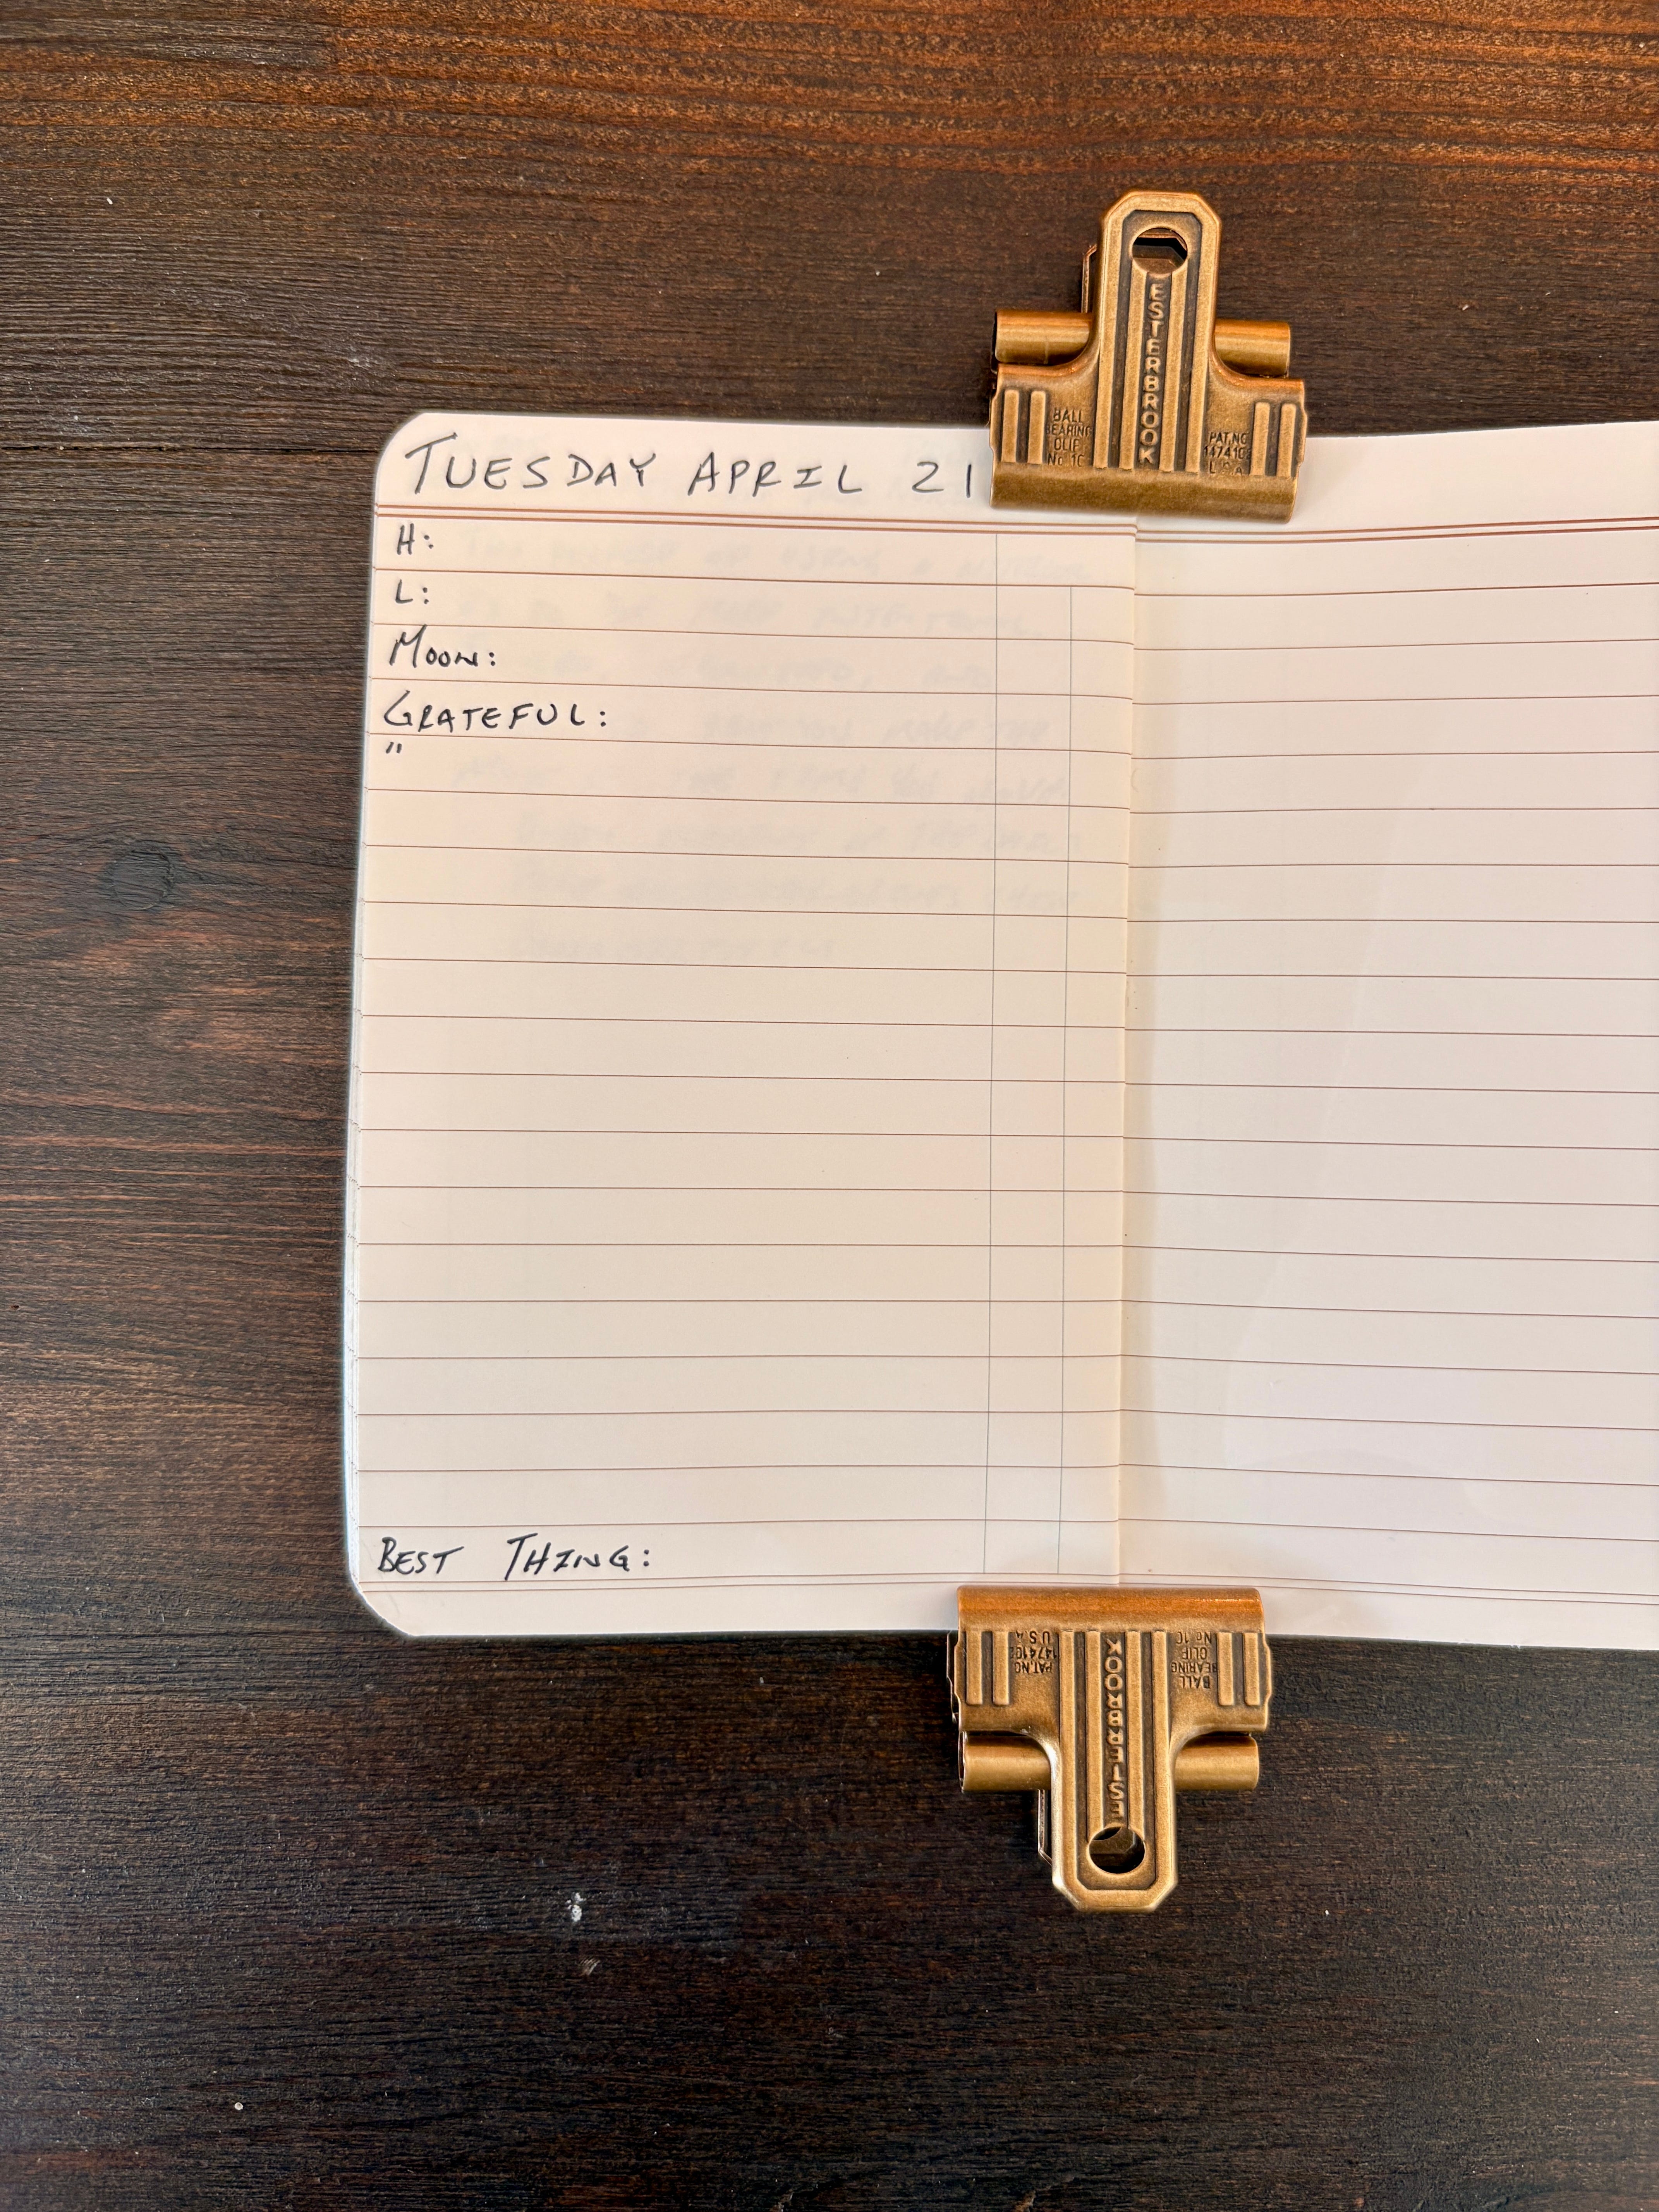 TUESDAY APRIL 21
H:
L:
MOON:
GRATEFUL:
"
BEST THING:
ESTERBROOK
BALL
BEARING
CLIP
No 10
PAT. NO
1474102
U.S.A
ESTERBROOK
BALL
BEARING
CLIP
No 10
PAT. NO
1474102
U.S.A